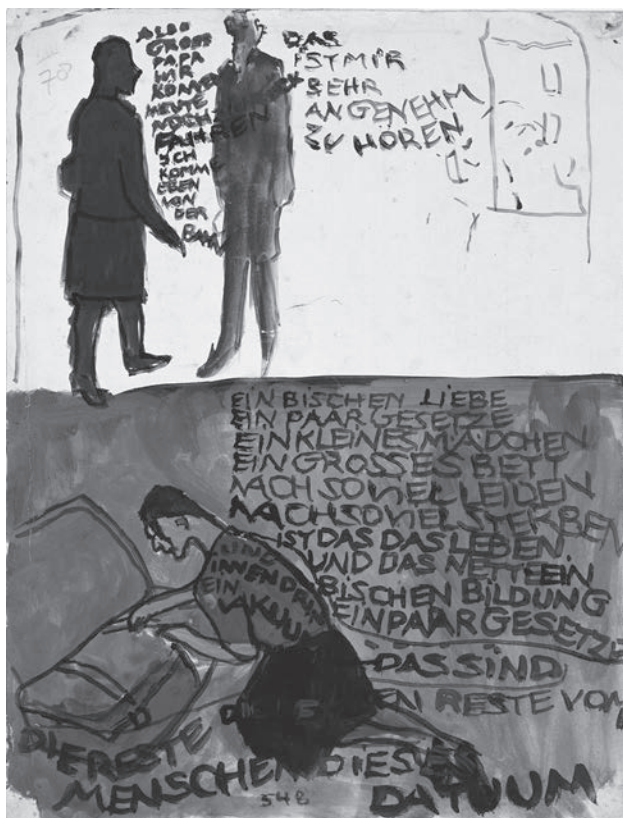 ALSO
GROSS
PAPA
WIR
KÖNNEN
HEUTE
NOCH
FAHREN
ICH
KOMME
EBEN
VON
DER
BAHN
DAS
IST MIR
SEHR
ANGENEHM
ZU HÖREN
EIN BISCHEN LIEBE
EIN PAAR GESETZE
EIN KLEINES MÄDCHEN
EIN GROSSES BETT
NACH SOVIEL LEIDEN
NACH SOVIEL STERBEN
IST DAS DAS LEBEN
UND DAS NETTE EIN
BISCHEN BILDUNG
EIN PAAR GESETZE
INNENDRIN
EIN
VAKUU
DAS SIND
RESTE VOM
DIE RESTE
MENSCHEN DIESES
548